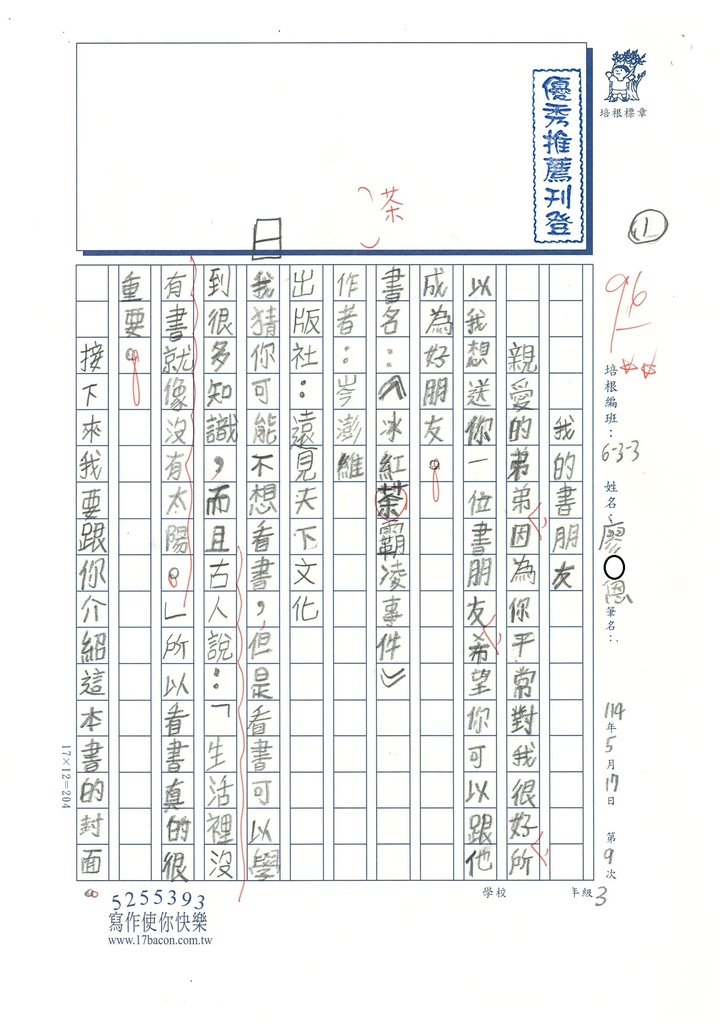 優秀推薦刊登
培根標章
1
96
茶
培根編班：6-3-3 姓名：廖○恩 筆名：
114年5月17日 第9次
學校 3年級
我的書朋友
親愛的弟弟因為你平常對我很好所
以我想送你一位書朋友希望你可以跟他
成為好朋友。
書名：《冰紅茶霸凌事件》
作者：岑澎維
出版社：遠見天下文化
我猜你可能不想看書，但是看書可以學
到很多知識，而且古人說：「生活裡沒
有書就像沒有太陽。」所以看書真的很
重要。
接下來我要跟你介紹這本書的封面。
17×12=204
5255393
寫作使你快樂
www.17bacon.com.tw